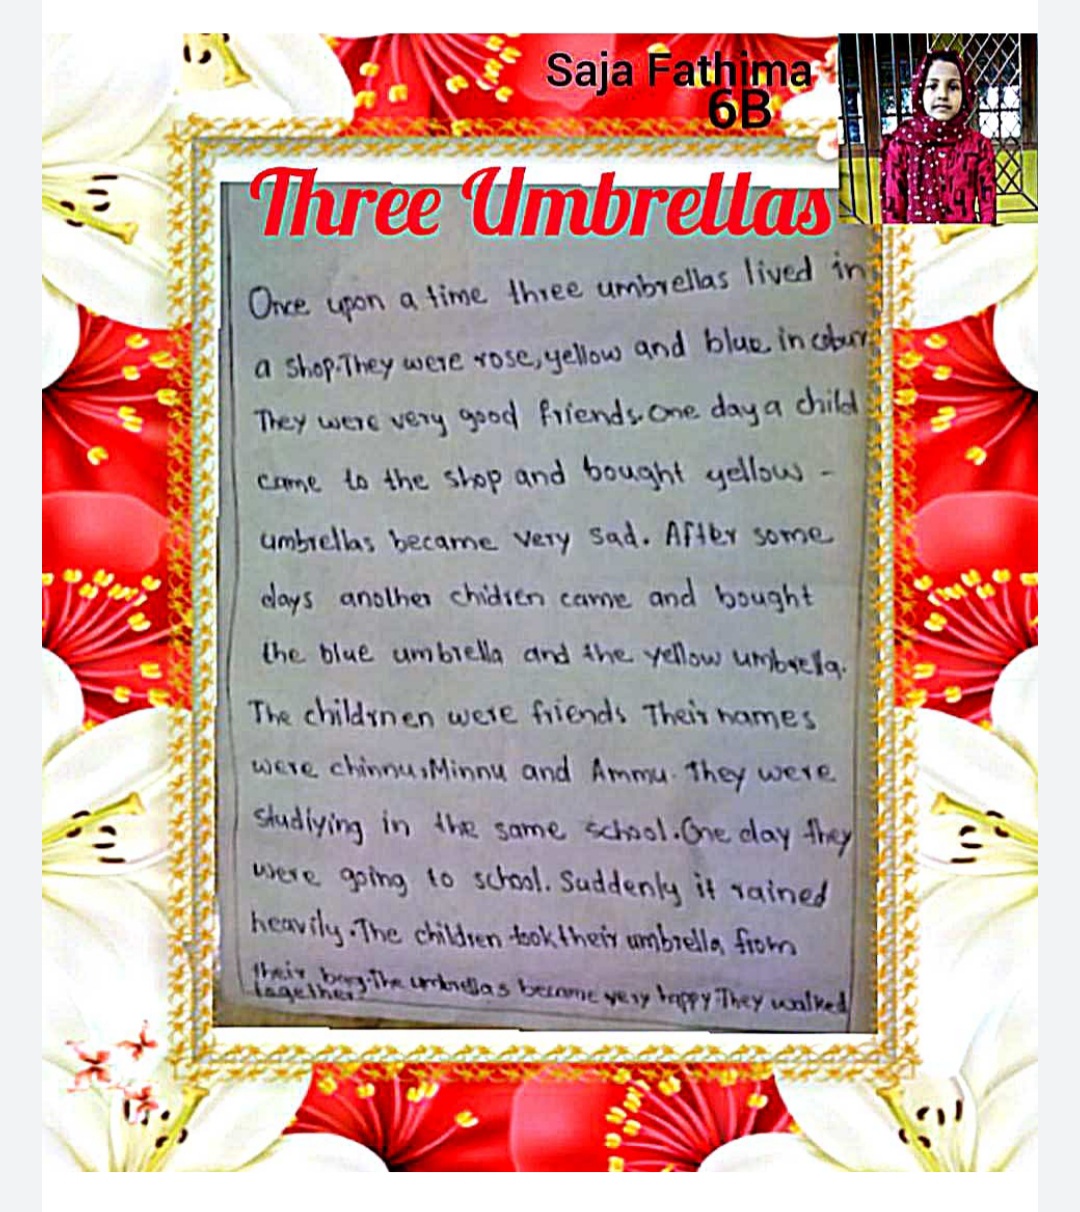 Saja Fathima
6B
Three Umbrellas
Once upon a time three umbrellas lived in
a shop.They were rose,yellow and blue in colour.
They were very good friends.One day a child
came to the shop and bought yellow -
umbrellas became very sad. After some
days another chidren came and bought
the blue umbrella and the yellow umbrella.
The childrnen were friends Their names
were chinnu,Minnu and Ammu. They were
studiying in the same school.One day they
were going to school. Suddenly it rained
heavily.The children took their umbrella from
their bag.The umbrellas became very happy They walked
together.